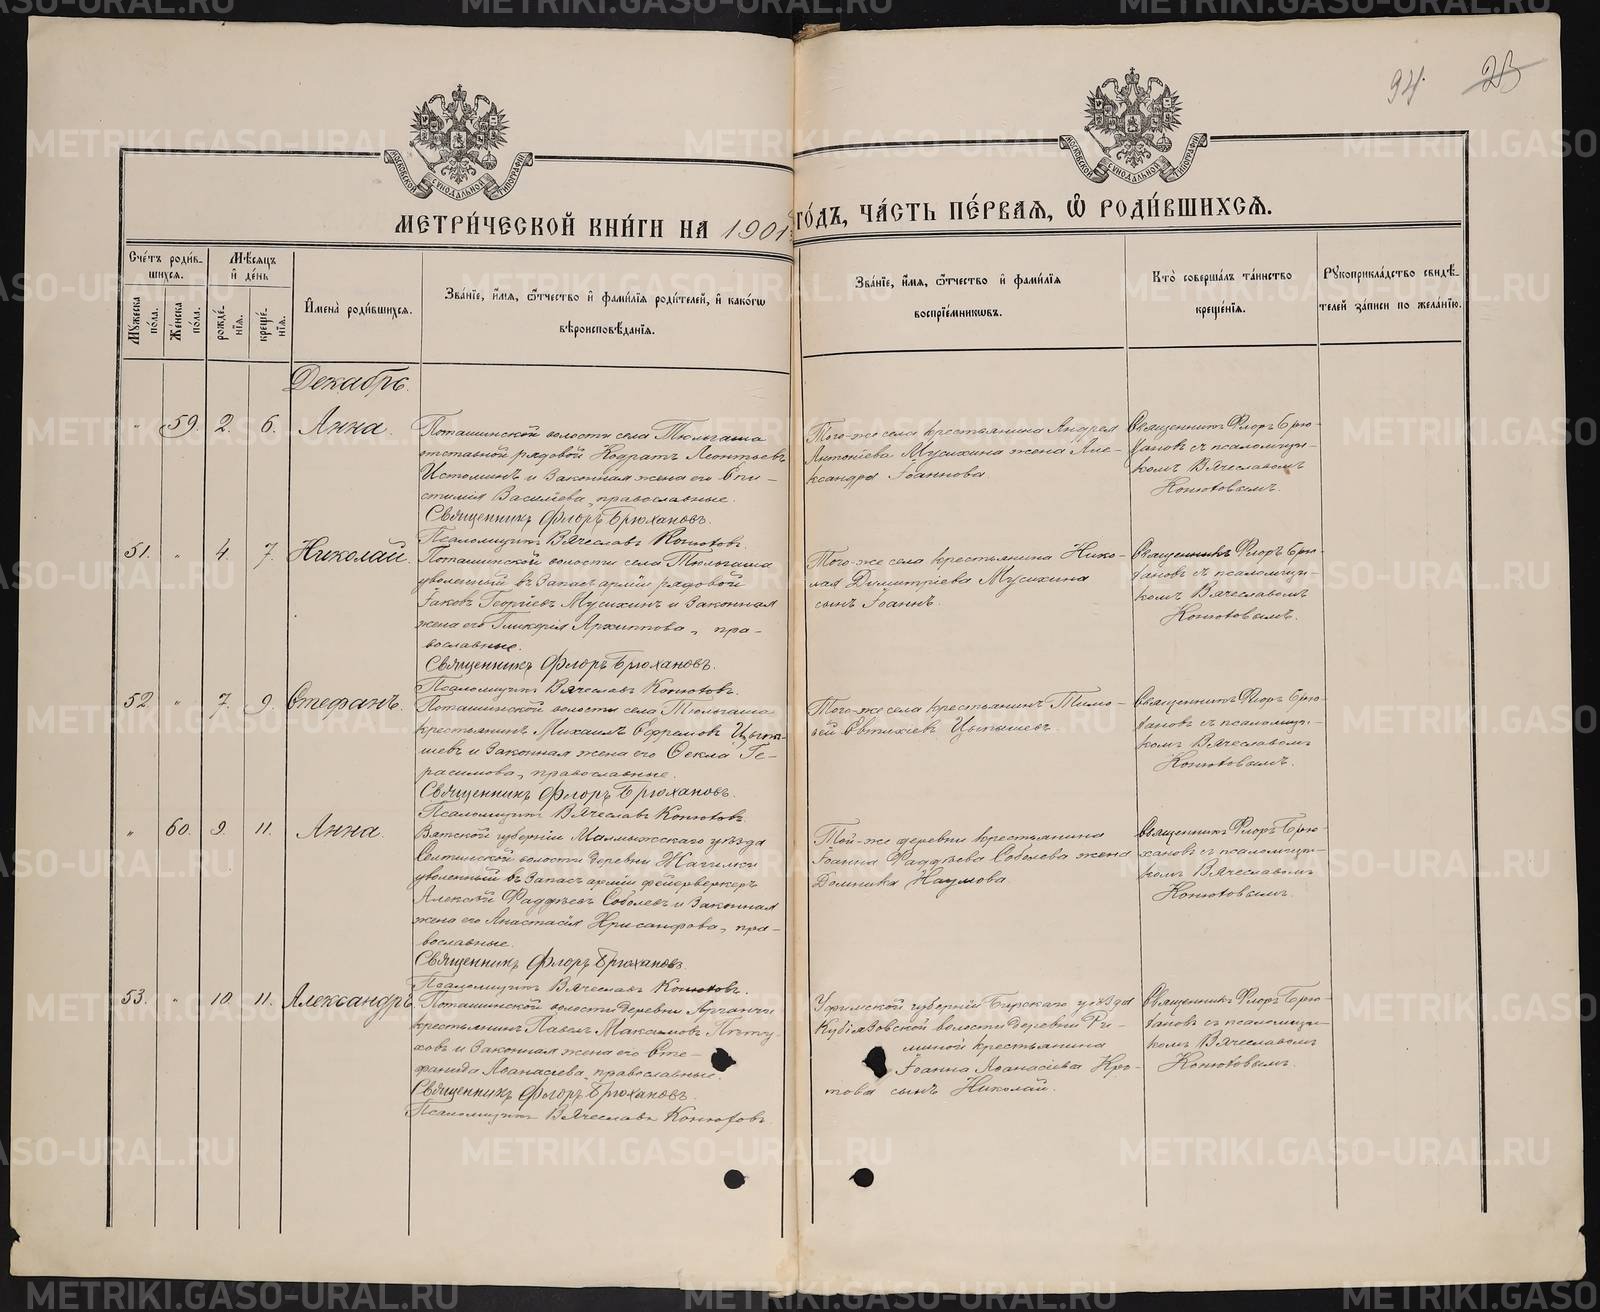 94. 23
МОСКОВСКОЙ СѴНОДАЛЬНОЙ ТИПОГРАФІИ
МОСКОВСКОЙ СѴНОДАЛЬНОЙ ТИПОГРАФІИ
МЕТРИ́ЧЕСКОЙ КНИ́ГИ НА 1901 ГО́ДЪ, ЧА́СТЬ ПЕ́РВАЯ, Ѽ РОДИ́ВШИХСЯ.
Сче́тъ роди́вшихся.
Мꙋ́жеска по́ла.
Же́нска по́ла.
Мѣ́сяцъ и҆ де́нь
рожде́нїя.
креще́нїя.
И҆мена̀ роди́вшихся.
Зва́нїе, и҆́мя, ѻ҆́тчество и҆ фами́лїя роди́телей, и҆ како́гѡ вѣроисповѣ́данїя.
Зва́нїе, и҆́мя, ѻ҆́тчество и҆ фами́лїя воспрїе́мникѡвъ.
Кто̀ соверша́лъ та́инство креще́нїя.
Рꙋкоприкла́дство свидѣ́телей за́писи по жела́нїю.
Декабрь.
" 59. 2. 6. Анна.
Поташинской волости села Тюльгаша
отставной рядовой Кодратъ Леонтьевъ
Истоминъ и законная жена его Епи-
стимия Васильева, православные.
Священникъ Флоръ Брюхановъ.
Псаломщикъ Вячеславъ Конюховъ.
Того-же села крестьянина Андрея
Антоніева Мусихина жена Але-
ксандра Іоаннова.
Священникъ Флоръ Брю-
хановъ съ псаломщи-
комъ Вячеславомъ
Конюховымъ.
51. " 4. 7. Николай.
Поташинской волости села Тюльгаша
уволенный въ запасъ арміи рядовой
Іаковъ Георгіевъ Мусихинъ и законная
жена его Гликерія Архиппова, пра-
вославные.
Священникъ Флоръ Брюхановъ.
Псаломщикъ Вячеславъ Конюховъ.
Того-же села крестьянина Нико-
лая Димитріева Мусихина
сынъ Іоаннъ.
Священникъ Флоръ Брю-
хановъ съ псаломщи-
комъ Вячеславомъ
Конюховымъ.
52 " 7. 9. Стефанъ.
Поташинской волости села Тюльгаша
крестьянинъ Михаилъ Ефремовъ
и законная жена его Ѳекла Ге-
расимова, православные.
Священникъ Флоръ Брюхановъ.
Псаломщикъ Вячеславъ Конюховъ.
Того-же села крестьянинъ Тимо-
ѳей Евтихіевъ
Священникъ Флоръ Брю-
хановъ съ псаломщи-
комъ Вячеславомъ
Конюховымъ.
" 60. 9. 11. Анна.
Вятской губерніи Малмыжскаго уѣзда
Селтинской волости деревни
уволенный въ запасъ арміи фейерверкеръ
Алексѣй Фаддѣевъ Соболевъ и законная
жена его Анастасія Хрисанфова, пра-
вославные.
Священникъ Флоръ Брюхановъ.
Псаломщикъ Вячеславъ Конюховъ.
Той-же деревни крестьянина
Іоанна Фаддѣева Соболева жена
Домника Наумова.
Священникъ Флоръ Брю-
хановъ съ псаломщи-
комъ Вячеславомъ
Конюховымъ.
53. " 10. 11. Александръ.
Поташинской волости деревни
крестьянинъ Павелъ Максимовъ Пѣту-
ховъ и законная жена его Сте-
фанида Аѳанасіева, православные.
Священникъ Флоръ Брюхановъ.
Псаломщикъ Вячеславъ Конюховъ.
Уфимской губерніи Бирскаго уѣзда
Кубіязовской волости деревни
крестьянина
Іоанна Аѳанасіева Кро-
това сынъ Николай.
Священникъ Флоръ Брю-
хановъ съ псаломщи-
комъ Вячеславомъ
Конюховымъ.
METRIKI.GASO-URAL.RU